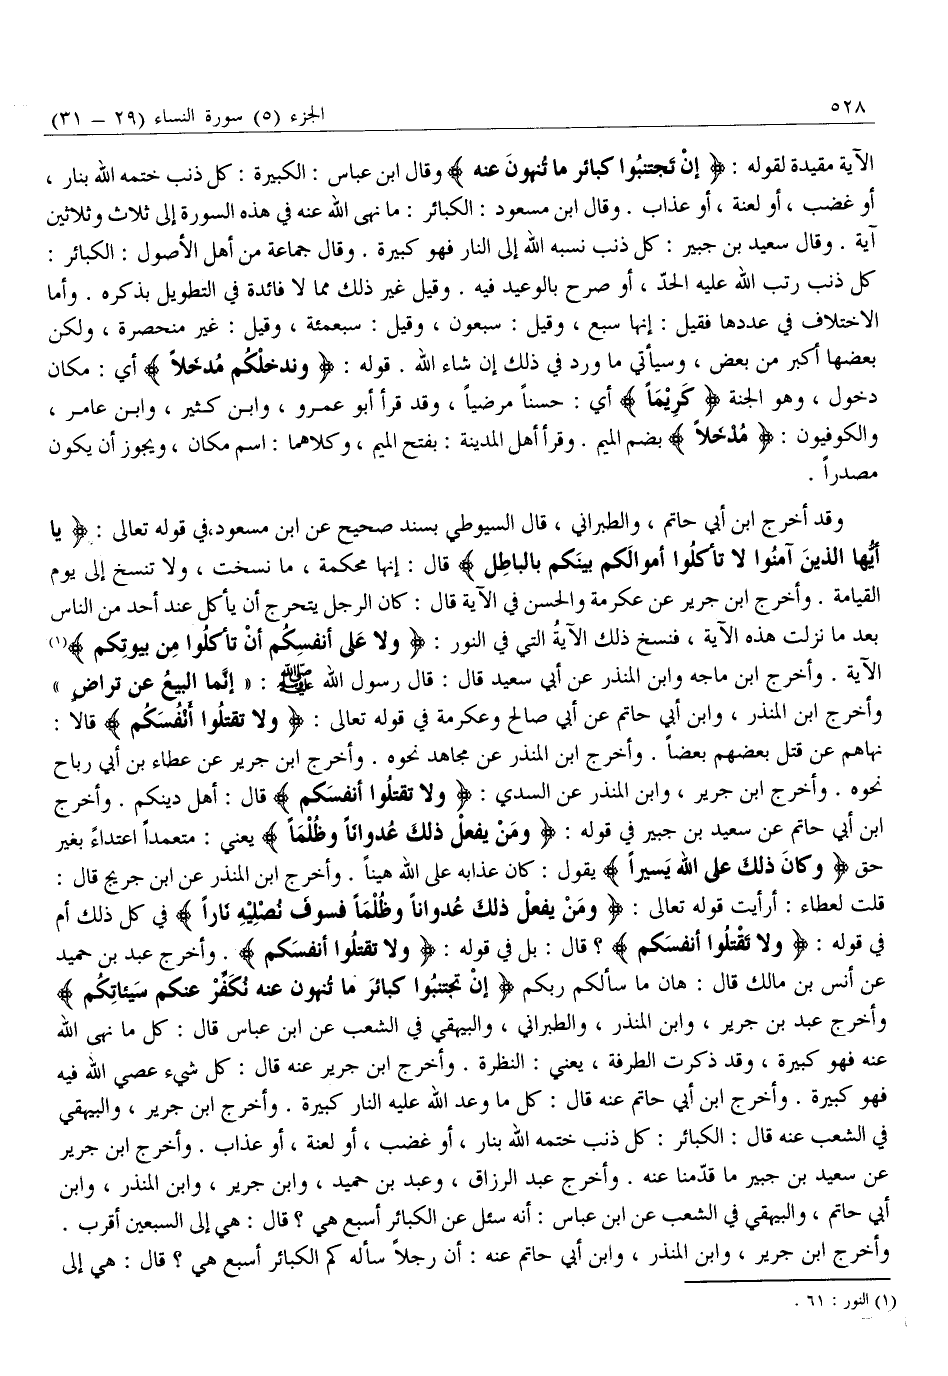 ٥٢٨
الجزء (٥) سورة النساء (٢٩ – ٣١)
الآية مقيدة لقوله : ﴿ إنْ تَجتنبُوا كبائر ما تُنهونَ عنه ﴾ وقال ابن عباس : الكبيرة : كل ذنب ختمه الله بنار ،
أو غضب ، أو لعنة ، أو عذاب . وقال ابن مسعود : الكبائر : ما نهى الله عنه في هذه السورة إلى ثلاث وثلاثين
آية . وقال سعيد بن جبير : كل ذنب نسبه الله إلى النار فهو كبيرة . وقال جماعة من أهل الأصول : الكبائر :
كل ذنب رتب الله عليه الحدّ ، أو صرح بالوعيد فيه . وقيل غير ذلك مما لا فائدة في التطويل بذكره . وأما
الاختلاف في عددها فقيل : إنها سبع ، وقيل : سبعون ، وقيل : سبعمئة ، وقيل : غير منحصرة ، ولكن
بعضها أكبر من بعض ، وسيأتي ما ورد في ذلك إن شاء الله . قوله : ﴿ وندخلْكُم مُدخَلاً ﴾ أي : مكان
دخول ، وهو الجنة ﴿ كَرِيْمَاً ﴾ أي : حسناً مرضياً ، وقد قرأ أبو عمرو ، وابن كثير ، وابن عامر ،
والكوفيون : ﴿ مُدْخَلاً ﴾ بضم الميم . وقرأ أهل المدينة : بفتح الميم ، وكلاهما : اسم مكان ، ويجوز أن يكون
مصدراً .
وقد أخرج ابن أبي حاتم ، والطبراني ، قال السيوطي بسند صحيح عن ابن مسعود،في قوله تعالى : ﴿ يا
أيُّها الذينَ آمنُوا لا تأكلُوا أموالَكم بينَكم بالباطِل ﴾ قال : إنها محكمة ، ما نسخت ، ولا تنسخ إلى يوم
القيامة . وأخرج ابن جرير عن عكرمة والحسن في الآية قال : كان الرجل يتحرج أن يأكل عند أحد من الناس
بعد ما نزلت هذه الآية ، فنسخ ذلك الآيةُ التي في النور : ﴿ ولا عَلى أنفسِكُم أنْ تأكلُوا مِن بيوتِكم ﴾(١)
الآية . وأخرج ابن ماجه وابن المنذر عن أبي سعيد قال : قال رسول الله ﷺ : « إنَّما البيعُ عن تراضٍ »
وأخرج ابن المنذر ، وابن أبي حاتم عن أبي صالح وعكرمة في قوله تعالى : ﴿ ولا تقتلُوا أَنْفُسَكُم ﴾ قالا :
نهاهم عن قتل بعضهم بعضاً . وأخرج ابن المنذر عن مجاهد نحوه . وأخرج ابن جرير عن عطاء بن أبي رباح
نحوه . وأخرج ابن جرير ، وابن المنذر عن السدي : ﴿ ولا تقتلُوا أنفسَكم ﴾ قال : أهل دينكم . وأخرج
ابن أبي حاتم عن سعيد بن جبير في قوله : ﴿ ومَنْ يفعلْ ذلكَ عُدواناً وظُلْمَاً ﴾ يعني : متعمداً اعتداءً بغير
حق ﴿ وكانَ ذلكَ على الله يَسيراً ﴾ يقول : كان عذابه على الله هيناً . وأخرج ابن المنذر عن ابن جريج قال :
قلت لعطاء : أرأيت قوله تعالى : ﴿ ومَنْ يفعلْ ذلكَ عُدواناً وظُلْمَاً فسوفَ نُصْلِيْهِ نَاراً ﴾ في كل ذلك أم
في قوله : ﴿ ولا تَقْتلُوا أنفسَكم ﴾ ؟ قال : بل في قوله : ﴿ ولا تقتلُوا أنفسَكم ﴾ . وأخرج عبد بن حميد
عن أنس بن مالك قال : هان ما سألكم ربكم ﴿ إنْ تجتنبُوا كبائرَ ما تُنهون عنه نُكفِّرْ عنكم سَيئاتِكُم ﴾
وأخرج عبد بن جرير ، وابن المنذر ، والطبراني ، والبيهقي في الشعب عن ابن عباس قال : كل ما نهى الله
عنه فهو كبيرة ، وقد ذكرت الطرفة ، يعني : النظرة . وأخرج ابن جرير عنه قال : كل شيء عصي الله فيه
فهو كبيرة . وأخرج ابن أبي حاتم عنه قال : كل ما وعد الله عليه النار كبيرة . وأخرج ابن جرير ، والبيهقي
في الشعب عنه قال : الكبائر : كل ذنب ختمه الله بنار ، أو غضب ، أو لعنة ، أو عذاب . وأخرج ابن جرير
عن سعيد بن جبير ما قدّمنا عنه . وأخرج عبد الرزاق ، وعبد بن حميد ، وابن جرير ، وابن المنذر ، وابن
أبي حاتم ، والبيهقي في الشعب عن ابن عباس : أنه سئل عن الكبائر أسبع هي ؟ قال : هي إلى السبعين أقرب .
وأخرج ابن جرير ، وابن المنذر ، وابن أبي حاتم عنه : أن رجلاً سأله كم الكبائر أسبع هي ؟ قال : هي إلى
(١) النور : ٦١ .